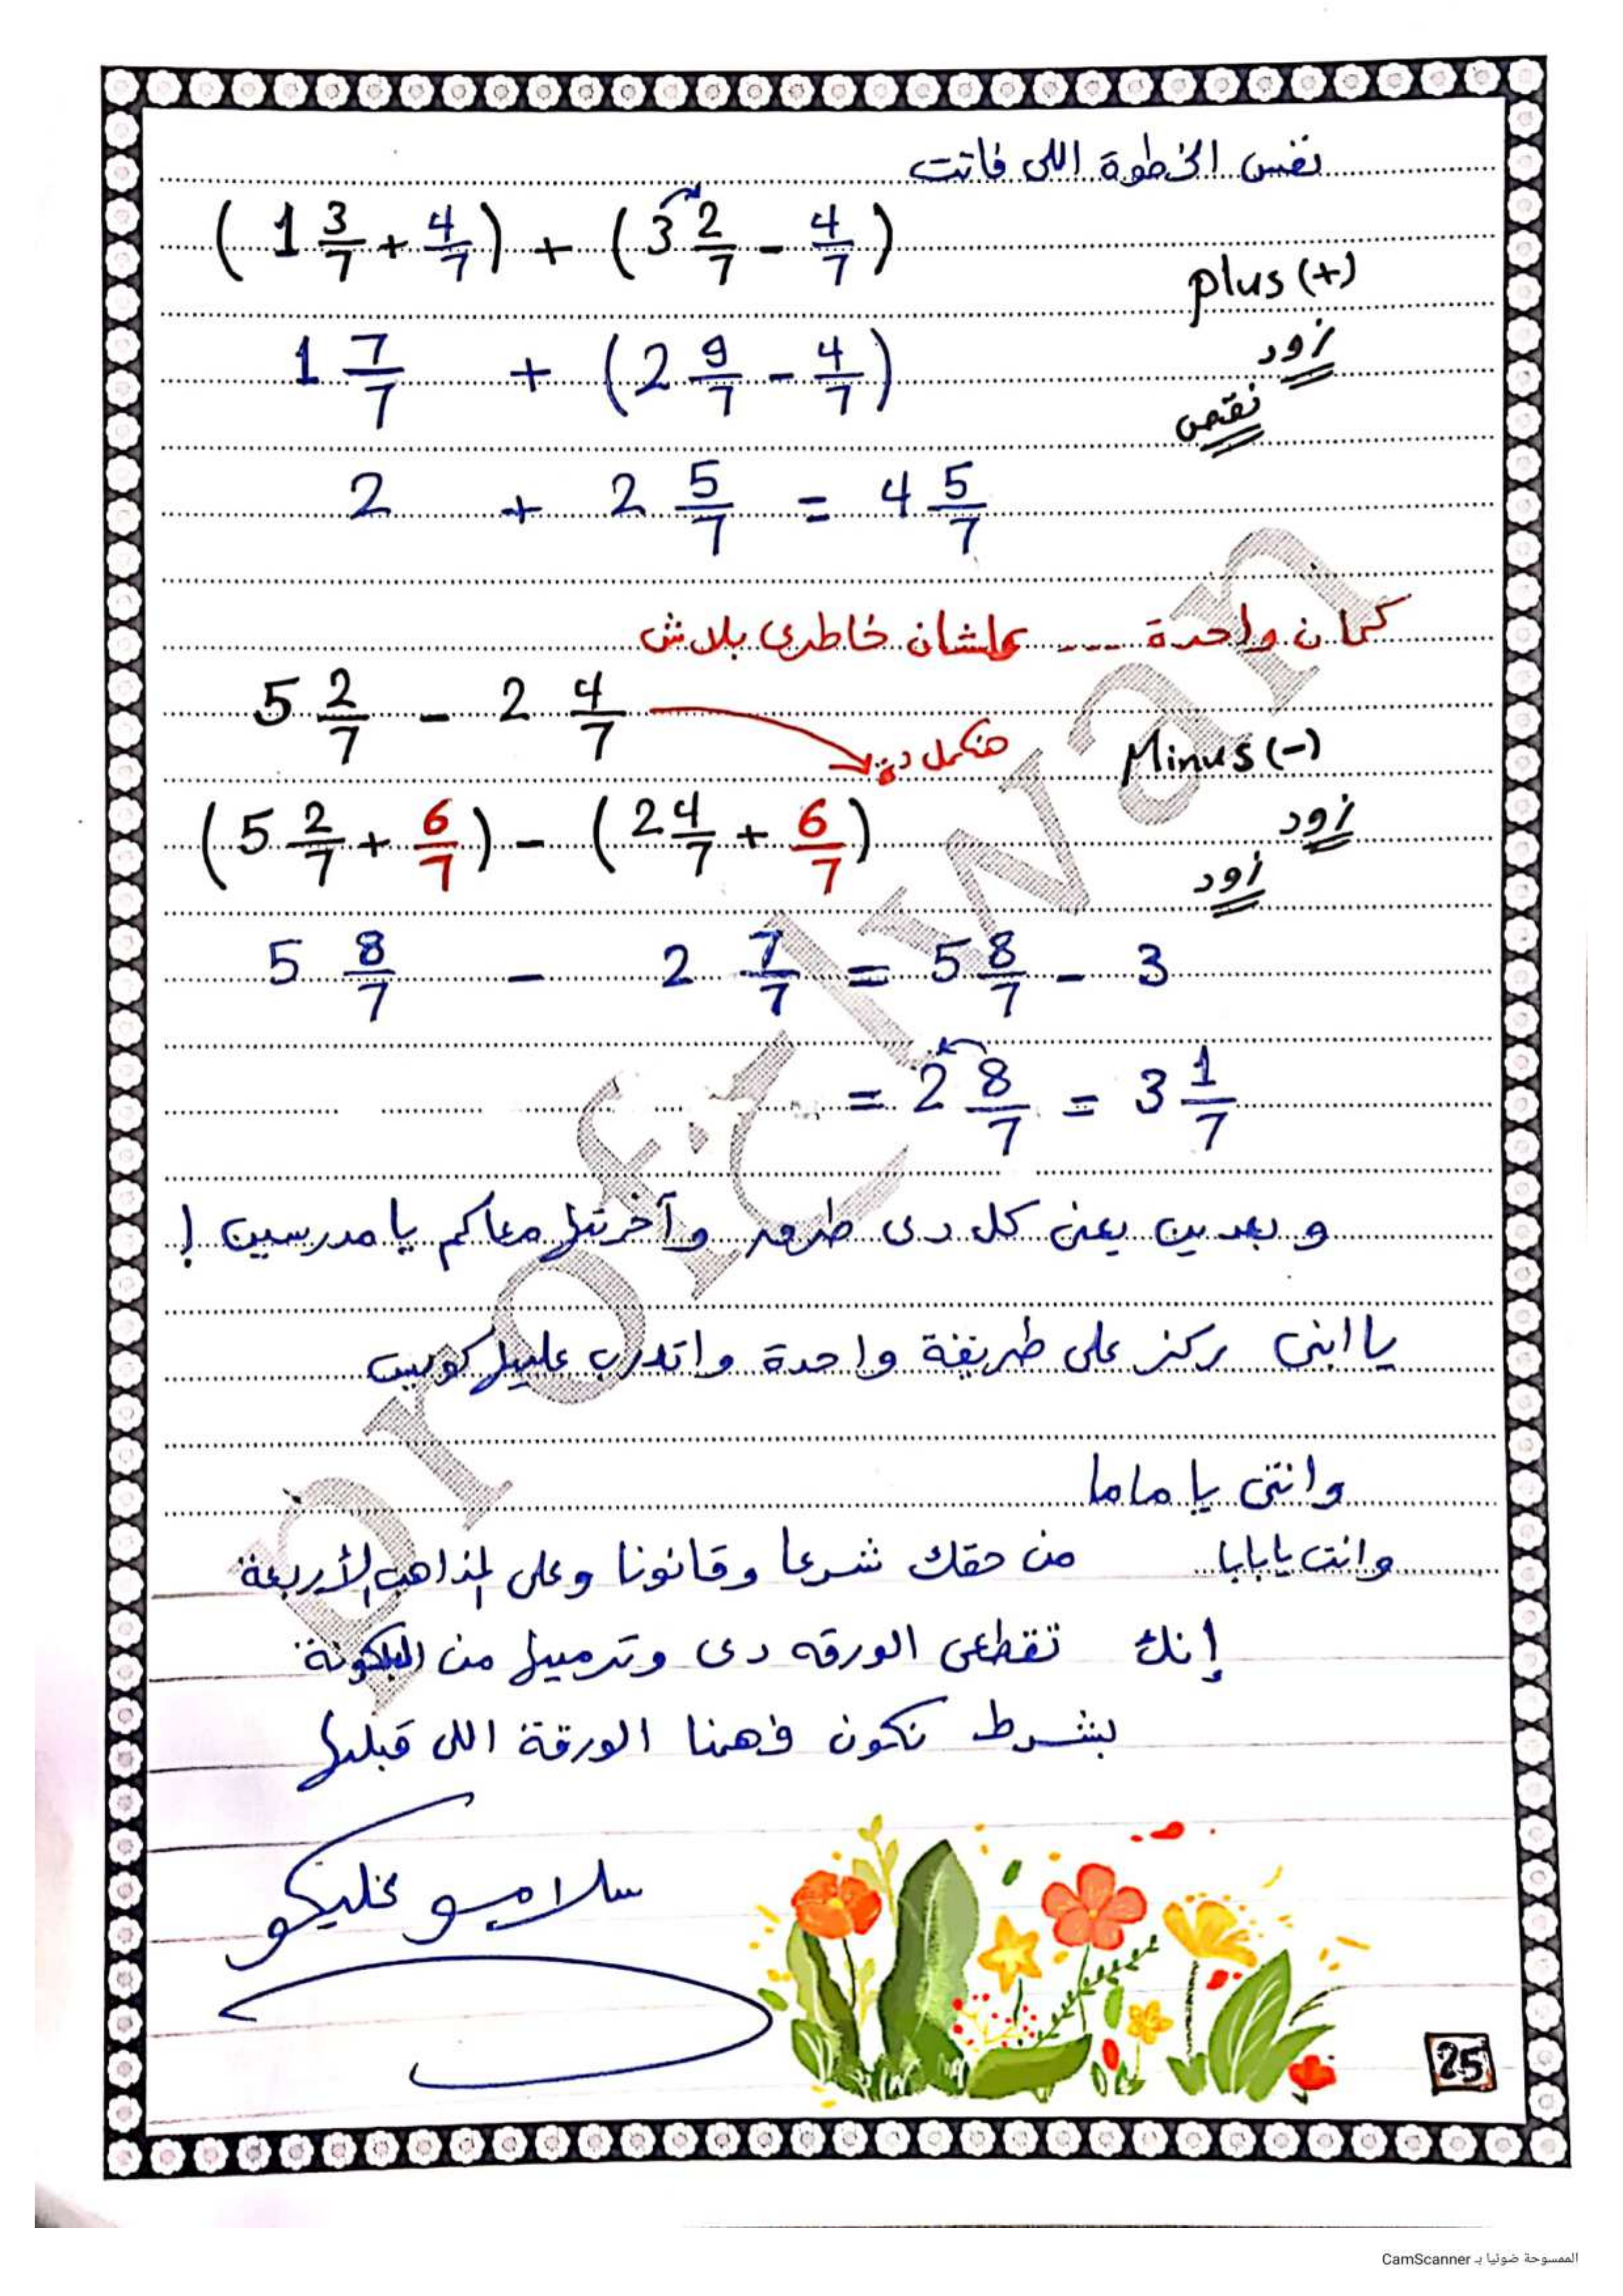 نفس الخطوة اللى فاتت
( 1 3/7 + 4/7 ) + ( 3 2/7 - 4/7 )
plus (+)
1 7/7 + ( 2 9/7 - 4/7 )
زود
نقص
2 + 2 5/7 = 4 5/7
كمان واحدة ---- علشان خاطرى بلاش
5 2/7 - 2 4/7
هنكمل دى
Minus (-)
( 5 2/7 + 6/7 ) - ( 2 4/7 + 6/7 )
زود
زود
5 8/7 - 2 7/7 = 5 8/7 - 3
= 2 8/7 = 3 1/7
و بعدين يعنى كل دى طرق وآخرتها معاكم يا مدرسين !
يا ابنى ركز على طريقة واحدة واتدرب عليها كويس
وانتى يا ماما
وانت يا بابا من حقك شرعا وقانونا وعلى المذاهب الأربعة
إنك تقطعى الورقه دى وترميها من البلكونة
بشرط نكون فهمنا الورقة اللى قبلها
سلامو عليكو
25
prof. Elwan
الممسوحة ضوئيا بـ CamScanner